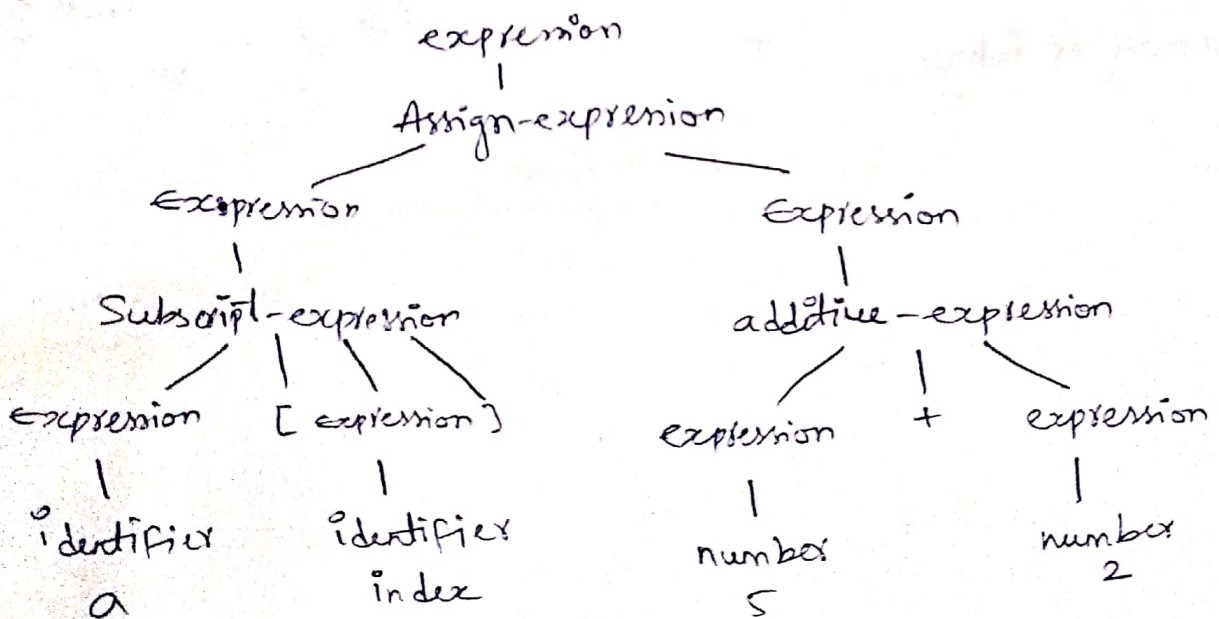 expression
Assign-expression
Expression Expression
Subscript-expression additive-expression
Expression [ expression ] expression + expression
identifier identifier number number
a index 5 2